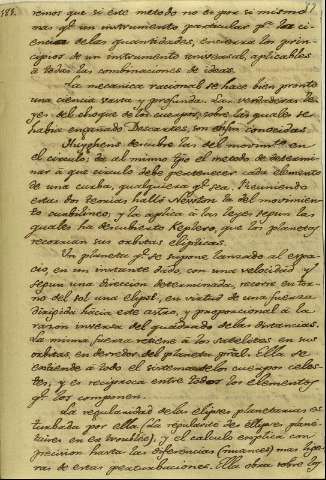 188.
remos que si este metodo no es por si mismo
mas qe. un instrumento particular pa. la ci
encia de las quantidades, encierra los prin-
cipios de un instrumento universal, aplicables
a todas las combinaciones de ideas.
La mecanica racional se hace bien pronto
una ciencia vasta y profunda. Las verdaderas le-
yes del choque de los cuerpos, sobre las quales se
habia engañado Descartes, son al fin conocidas.
Huyghens descubre las del movimto. en
el circulo; da al mismo tpo el metodo de determi-
nar a que circulo debe pertenecer cada elemento
de una curba, qualquiera qe. sea. Reuniendo
estas dos teorias halló Newton la del movimiento
curbilineo, y la aplica a las leyes segun las
quales ha descubierto Keplero, que los planetas
recorrian sus orbitas elipticas.
Un planeta qe. se supone lanzado al espa-
cio, en un instante dado, con una velocidad y
segun una direccion determinada, recorre en tor-
no del sol una elipse, en virtud de una fuerza
dirigida hácia este astro, y proporcional á la
razon inversa del quadrado de las distancias.
La misma fuerza retiene á los satelites en sus
orbitas, en derredor del planeta pral. Ella se
estiende á todo el sistema de los cuerpos celes-
tes, y es reciproca entre todos los elementos
qe. los componen.
La regularidad de las elipses planetarias es
turbada por ella (La regularité des ellipses plane-
taires en est troublée), y el calculo esplica con
precision hasta las diferencias (nuances) mas lige-
ras de estas perturbaciones. Ella obra sobre los